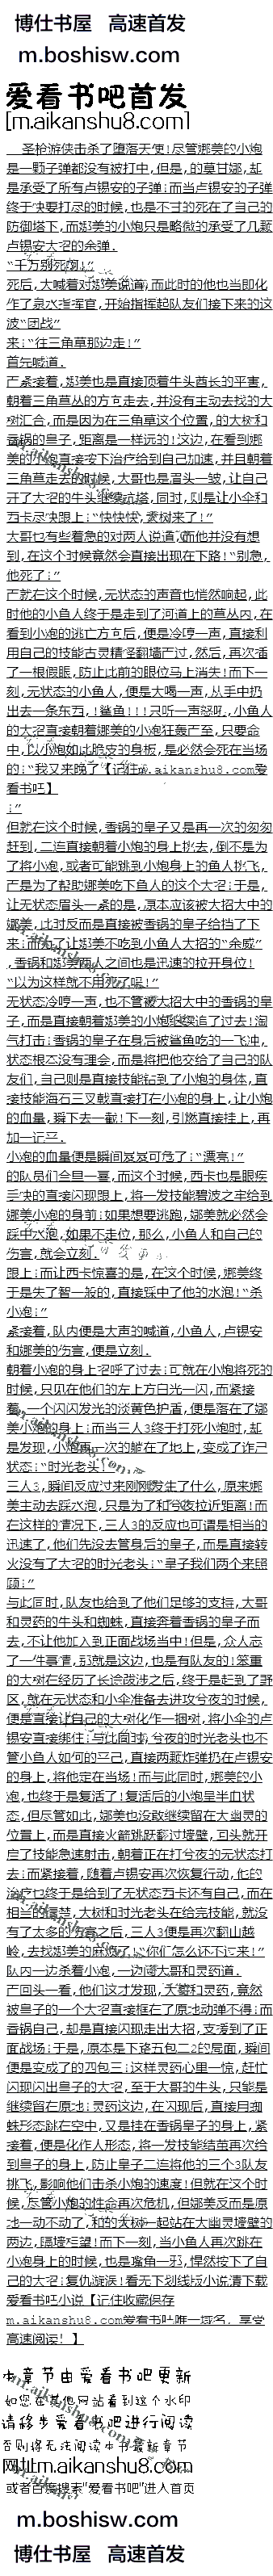 博仕书屋 高速首发
m.boshisw.com
爱看书吧首发
[m.aikanshu8.com]
圣枪游侠击杀了堕落天使!尽管娜美的小炮
是一颗子弹都没有被打中,但是,的莫甘娜,却
是承受了所有卢锡安的子弹!而当卢锡安的子弹
终于快要打尽的时候,也是不甘的死在了自己的
防御塔下,而娜美的小炮只是略微的承受了几颗
卢锡安大招的余弹.
死后,大喊着对娜美说道,而此时的他也当即化
作了泉水指挥官,开始指挥起队友们接下来的这
波“团战”
来:“往三角草那边走!”
首先喊道.
严紧接着,娜美也是直接顶着牛头酋长的平害,
朝着三角草丛的方向走去,并没有主动去找的大
树汇合,而是因为在三角草这个位置,的大树和
香锅的皇子,距离是一样远的!这边,在看到娜
美的小炮直接按下治疗给到自己加速,并且朝着
三角草走去的时候,大哥也是眉头一皱,让自己
开了大招的牛头继续抗塔,同时,则是让小伞和
西卡尽快跟上:“快快快,大树来了!”
大哥也有些着急的对两人说道,而他并没有想
到,在这个时候竟然会直接出现在下路!“别急,
他死了:”
严就在这个时候,无状态的声音也恍然响起,此
时他的小鱼人终于是走到了河道上的草丛内,在
看到小炮的逃亡方向后,便是冷哼一声,直接利
用自己的技能古灵精怪翻墙而过,然后,再次插
了一根假眼,防止此前的眼位马上消失!而下一
刻,无状态的小鱼人,便是大喝一声,从手中扔
出去一条东西,!鲨鱼!!!只听一声怒吼,小鱼人
的大招直接朝着娜美的小炮狂轰而至,只要命
中,以小炮如此脆皮的身板,是必然会死在当场
的:“我又来晚了【记住m.aikanshu8.com爱
看书吧】
:”
但就在这个时候,香锅的皇子又是再一次的匆匆
赶到,二连直接朝着小炮的身上挑去,倒不是为
了将小炮,或者可能跳到小炮身上的鱼人挑飞,
严是为了帮助娜美吃下鱼人的这个大招:于是,
让无状态眉头一紧的是,原本应该被大招大中的
娜美,此时反而是直接被香锅的皇子给挡了下
来!而为了让娜美不吃到小鱼人大招的“余威”
,香锅和娜美两人之间也是迅速的拉开身位!
“以为这样就不用死了吗!”
无状态冷哼一声,也不管被大招大中的香锅的皇
子,而是直接朝着娜美的小炮继续追了过去!淘
气打击:香锅的皇子在身后被鲨鱼吃的一飞冲,
状态根本没有理会,而是将把他交给了自己的队
友们,自己则是直接技能钻到了小炮的身体,直
接技能海石三叉戟直接打在小炮的身上,让小炮
的血量,瞬下去一截!下一刻,引燃直接挂上,再
加一记平.
小炮的血量便是瞬间岌岌可危了:“漂亮!”
的队员们全是一喜,而这个时候,西卡也是眼疾
手快的直接闪现跟上,将一发技能碧波之牢给到
娜美小炮的身前:如果想要逃跑,娜美就必然会
踩中水泡,如果不走位,那么,小鱼人和自己的
伤害,就会立刻.
跟上:而让西卡惊喜的是,在这个时候,娜美终
于是失了智一般的,直接踩中了他的水泡!“杀
小炮:”
紧接着,队内便是大声的喊道,小鱼人,卢锡安
和娜美的伤害,便是立刻.
朝着小炮的身上招呼了过去:可就在小炮将死的
时候,只见在他们的左上方白光一闪,而紧接
着,一个闪闪发光的淡黄色护盾,便是落在了娜
美小炮的身上:而当三人3终于打死小炮时,却
是发现,小炮再一次的躺在了地上,变成了诈尸
状态:“时光老头:”
三人3,瞬间反应过来刚刚发生了什么,原来娜
美主动去踩水泡,只是为了和兮夜拉近距离!而
在这样的情况下,三人3的反应也可谓是相当的
迅速了,他们先没去管身后的皇子,而是直接转
火没有了大招的时光老头:“皇子我们两个来照
顾:”
与此同时,队友也给到了他们足够的支持,大哥
和灵药的牛头和蜘蛛,直接奔着香锅的皇子而
去,不让他加入到正面战场当中!但是,众人忘
了一件事情,那就是这边,也是有队友的!笨重
的大树在经历了长途跋涉之后,终于是赶到了野
区,就在无状态和小伞准备去进攻兮夜的时候,
便是直接让自己的大树化作一捆树,将小伞的卢
锡安直接绑住:与此同时,兮夜的时光老头也不
管小鱼人如何的平己,直接两颗炸弹扔在卢锡安
的身上,将他定在当场!而与此同时,娜美的小
炮,也终于是复活了!复活后的小炮呈半血状
态,但尽管如此,娜美也没敢继续留在大幽灵的
位置上,而是直接火箭跳跃翻过墙壁,回头就开
启了技能急速射击,朝着正在打兮夜的无状态打
去:而紧接着,随着卢锡安再次恢复行动,他的
治疗也终于是给到了无状态西卡还有自己,而在
相当的清楚,大树和时光老头在给完技能,就没
有了太多的伤害之后,三人3便是再次翻山越
岭,去找娜美的麻烦:“你们怎么还不过来!”
队内一边杀着小炮,一边问大哥和灵药道.
严回头一看,他们这才发现,大哥和灵药,竟然
被皇子的一个大招直接框在了原地动弹不得:而
香锅自己,却是直接闪现走出大招,支援到了正
面战场:于是,原本是下路五包二2的局面,瞬间
便是变成了的四包三:这样灵药心里一惊,赶忙
闪现闪出皇子的大招,至于大哥的牛头,只能是
继续留在原地:灵药这边,在闪现后,直接用蜘
蛛形态跳在空中,又是挂在香锅皇子的身上,紧
接着,便是化作人形态,将一发技能结茧再次给
到皇子的身上,防止皇子二连将他的三个3队友
挑飞,影响他们击杀小炮的速度!但就在这个时
候,尽管小炮的性命再次危机,但娜美反而是原
地一动不动了,和的大树一起站在大幽灵墙壁的
两边,隔墙相望!而下一刻,当小鱼人再次跳在
小炮身上的时候,也是嘴角一邪,悍然按下了自
己的大招:复仇漩涡!看无下划线版小说请下载
爱看书吧小说【记住收藏保存
m.aikanshu8.com爱看书吧唯一域名,享受
高速阅读!】
本章节由爱看书吧更新
如您在其他网站看到这个水印
请移步爱看书吧进行阅读
否则将无法阅读本书最新章节
网址m.aikanshu8.com
或者百度搜索“爱看书吧”进入首页
m.boshisw.com
博仕书屋 高速首发